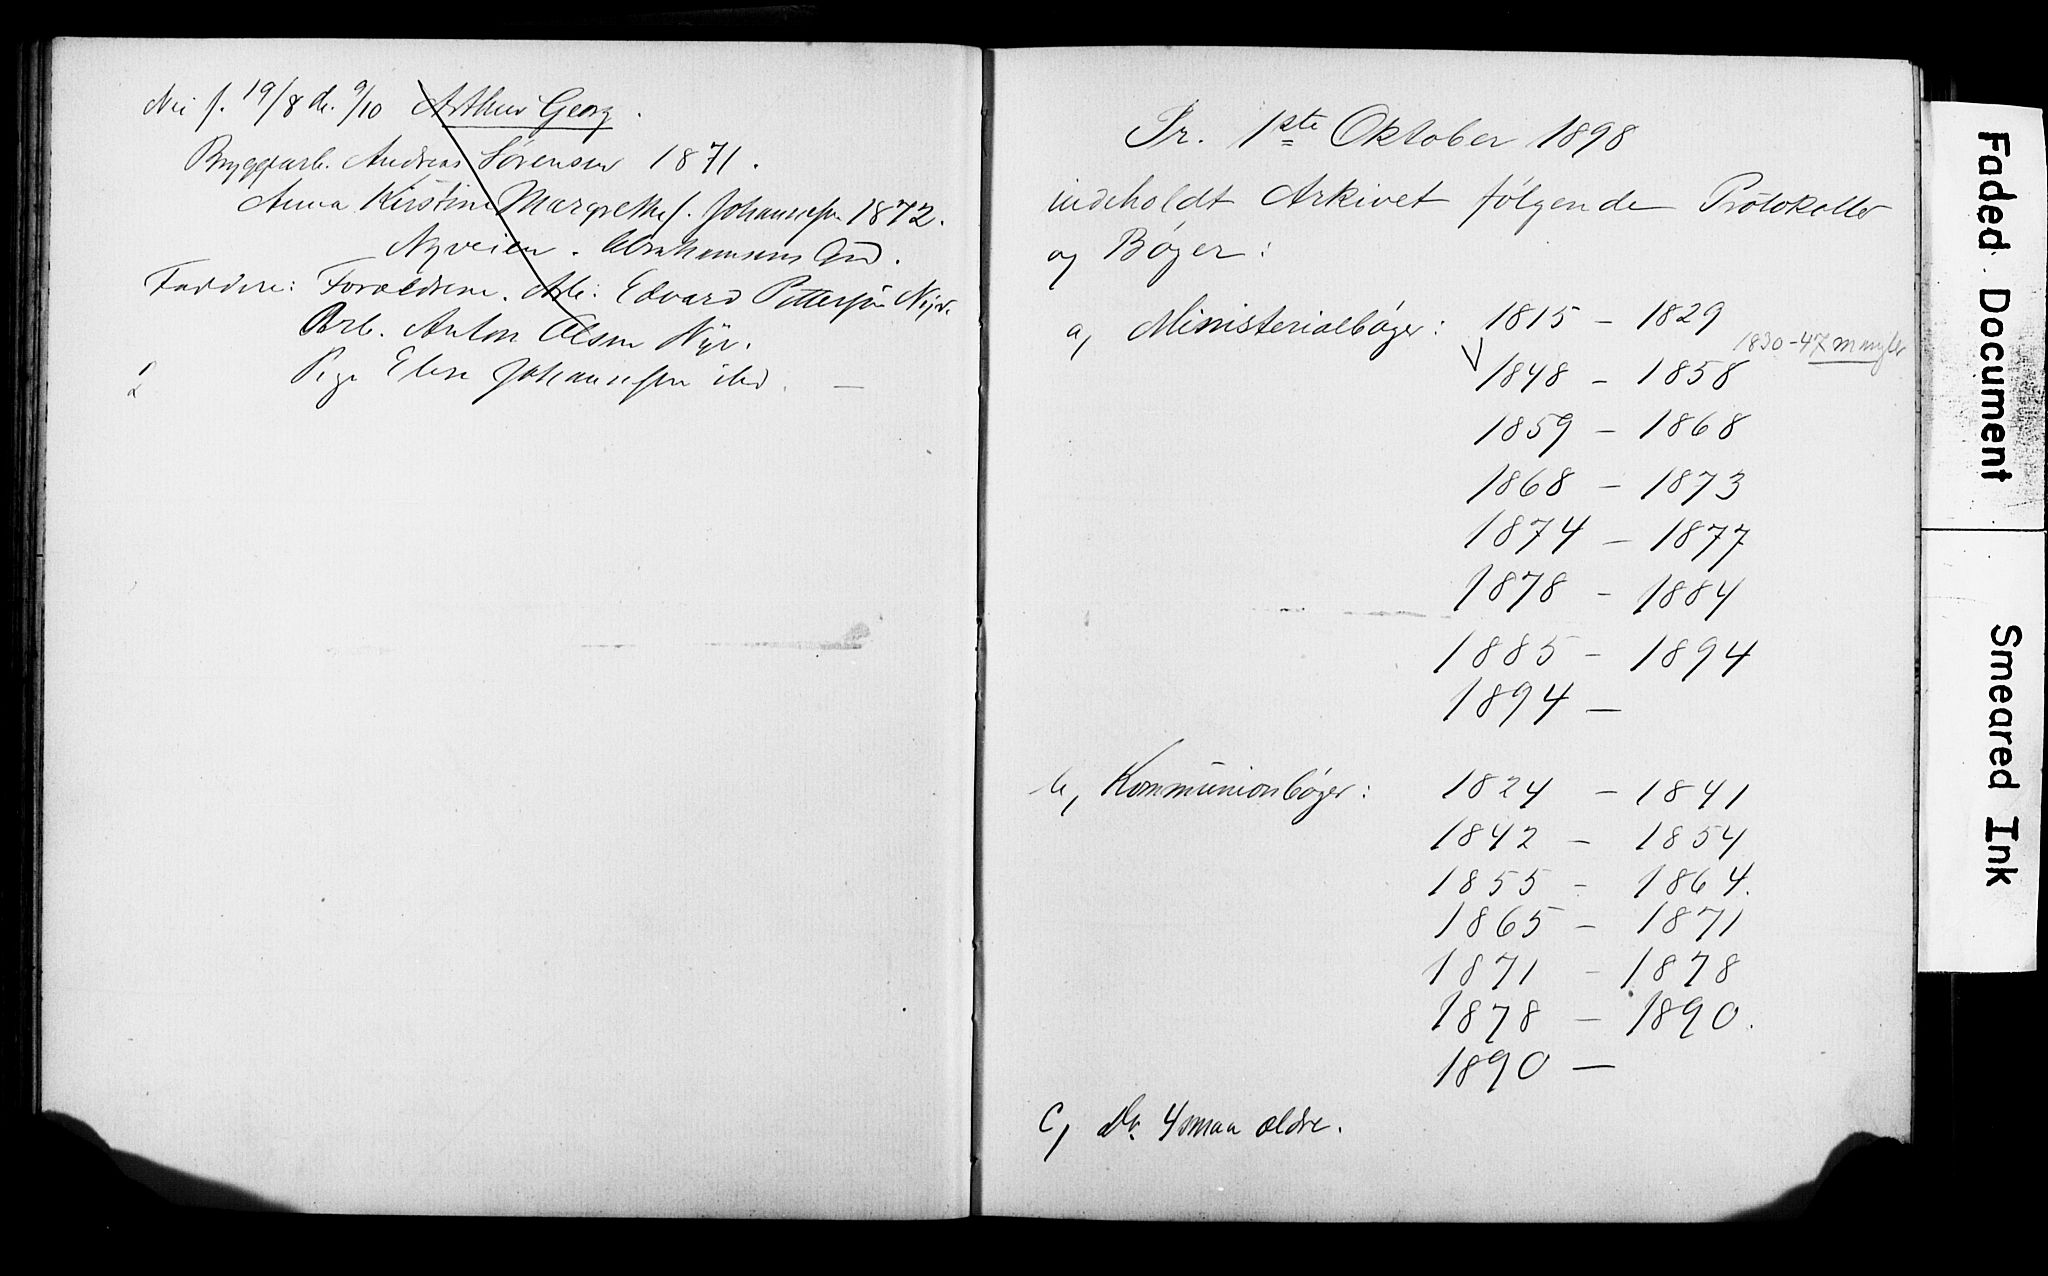 f. 19/8 d. 9/10 Arthur Georg.
Bryggearb. Andreas Sørensen 1871.
Anna Kirstine Margrethe f. Johannesen 1872.
Nyveien. Abrahamsens Grd.
Faddere: Forældrene. Arb: Edvard Pettersen Nyv.
Arb. Anton Olsen Nyv.
Pige Elise Johannesen ibd. —
Pr. 1ste Oktober 1898
indeholdt Arkivet følgende Protokoller
og Bøger:
a, Ministerialbøger: 1815 – 1829
1830-47 mangler
1848 – 1858
1859 – 1868
1868 – 1873
1874 – 1877
1878 – 1884
1885 – 1894
1894 –
b, Kommunionbøger: 1824 – 1841
1842 – 1854
1855 – 1864.
1865 – 1871
1871 – 1878
1878 – 1890.
1890 –
c, Do. 4 smaa ældre.
Faded Document
Smeared Ink